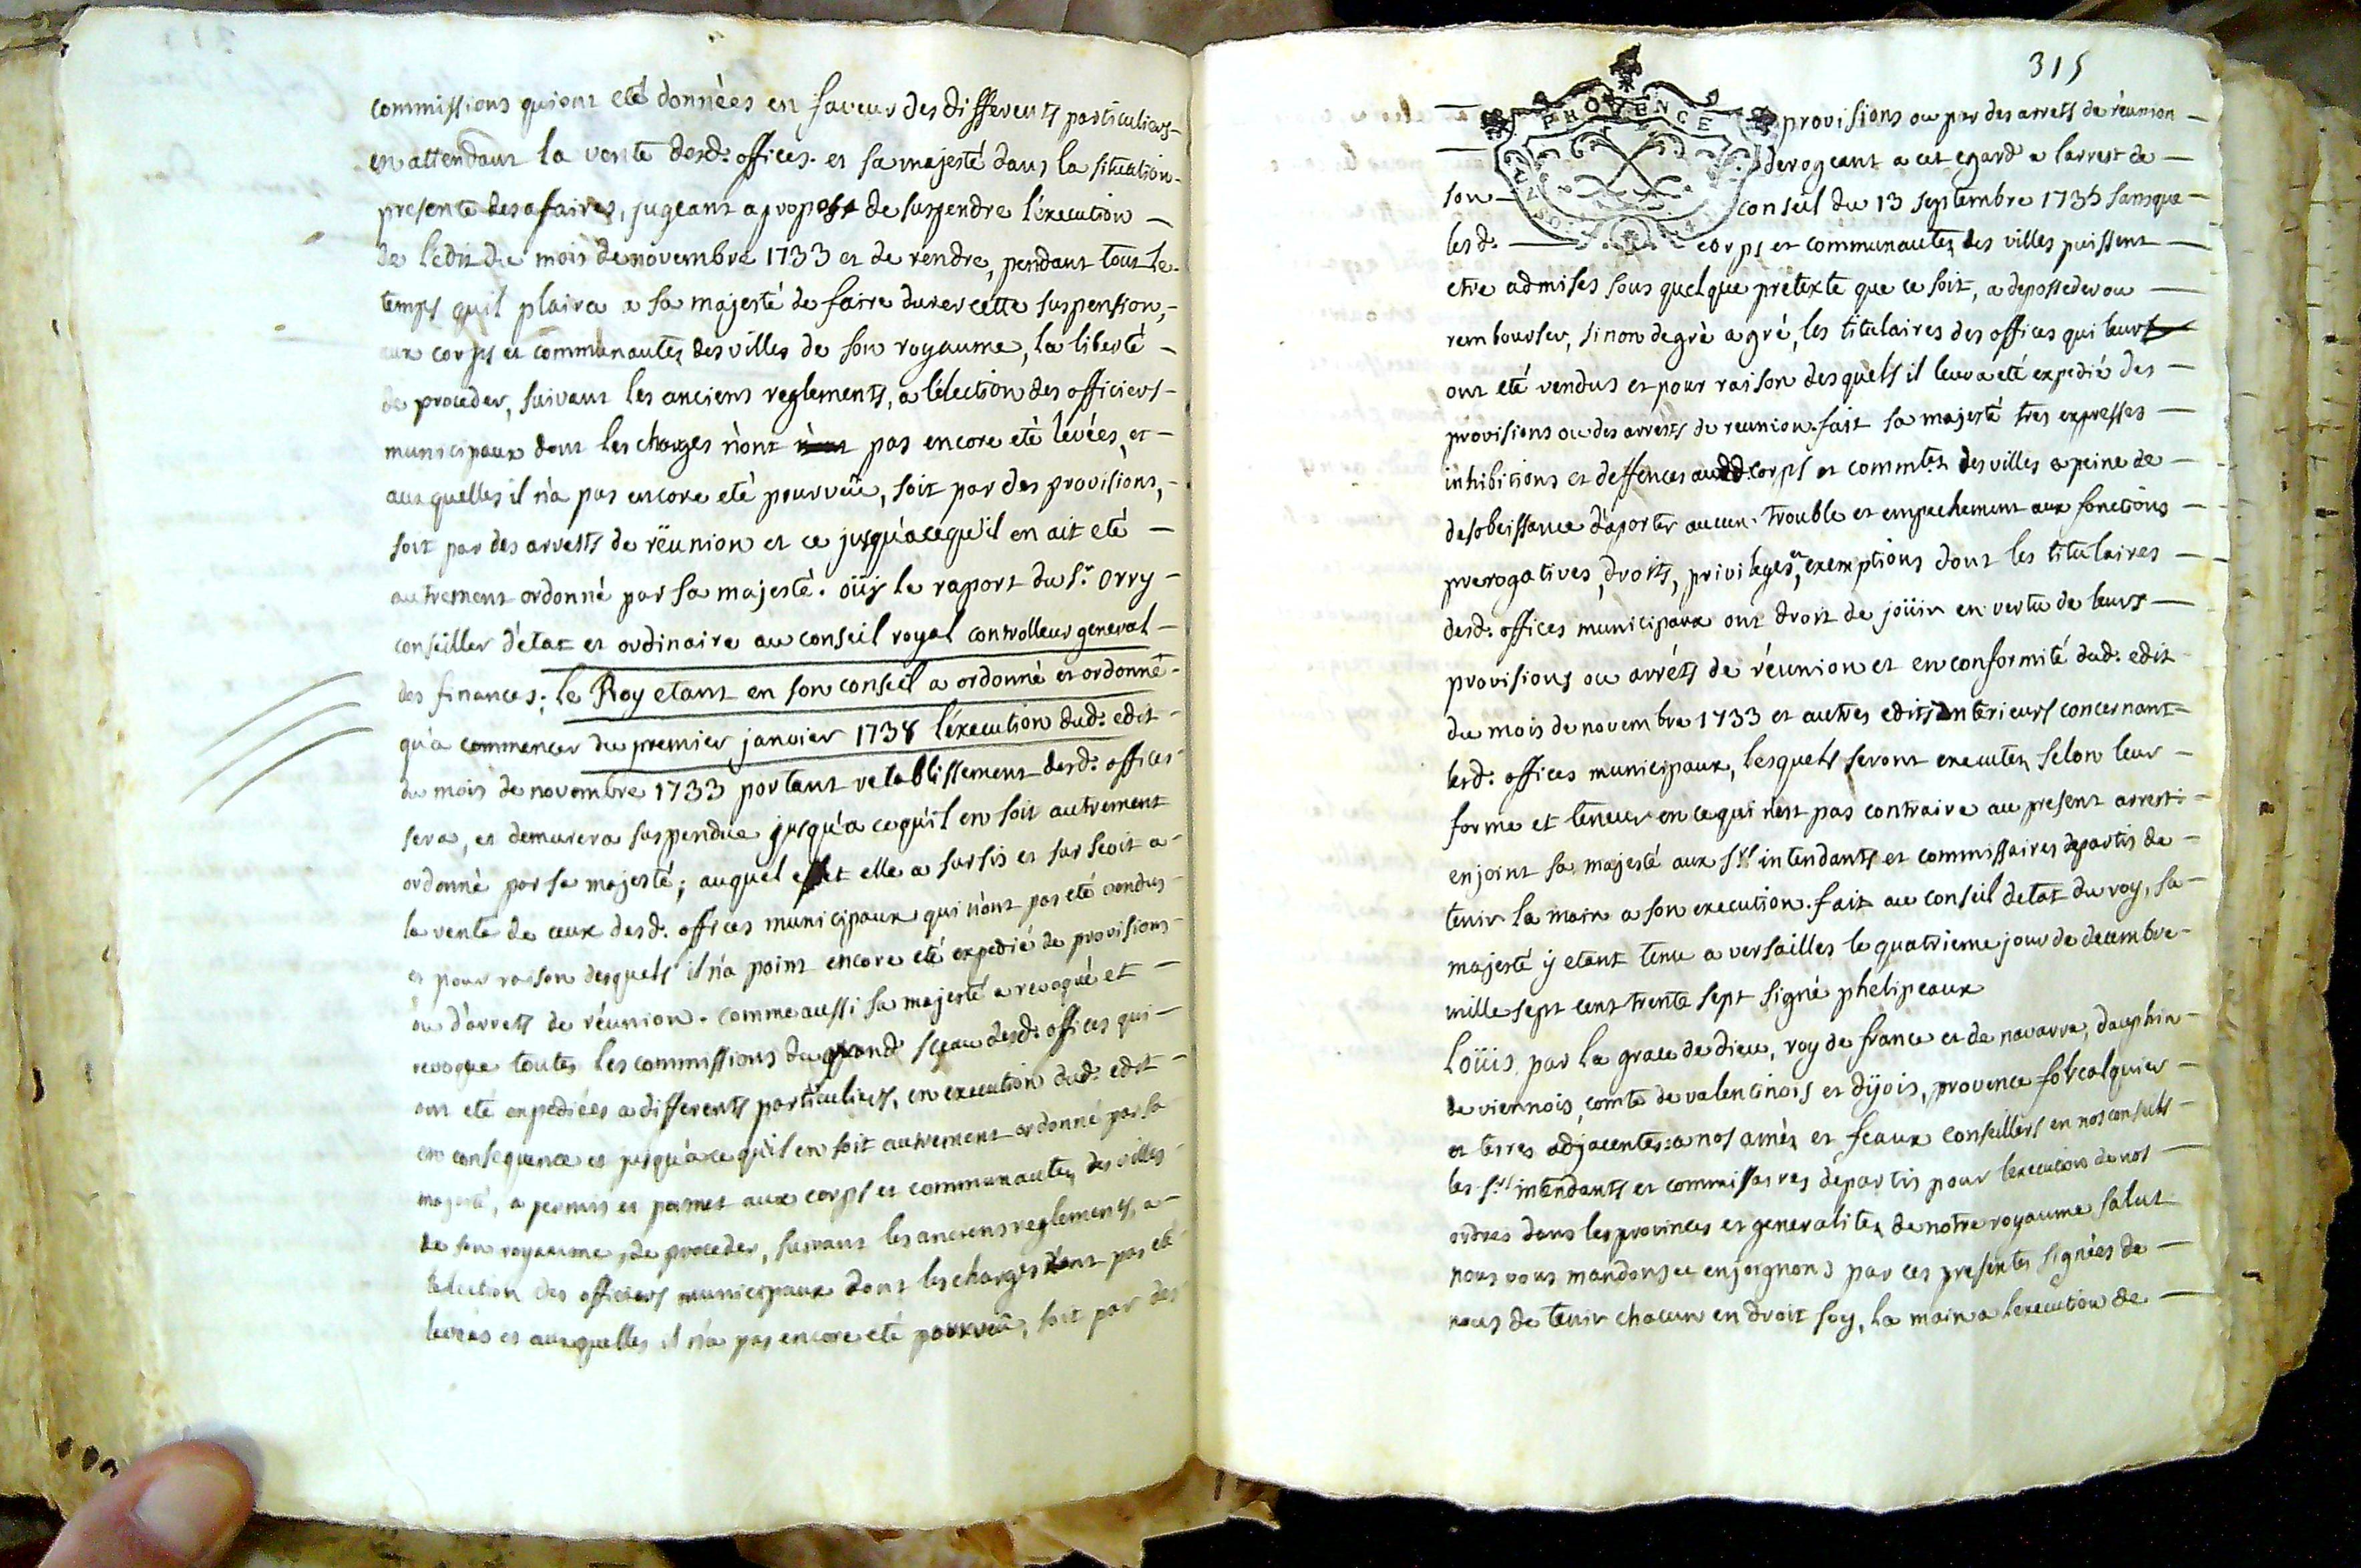 commissions qui ont eté données en faveur des differents particuliers
en attendant la vente desd. offices. et sa majesté dans la situation
presente des afaires, jugeant a propost de suspendre l'éxecution
de l'edit du mois de novembre 1733 et de rendre, pendant tout le
temps qu'il plaira a sa majesté de faire durer cette suspension,
aux corps et communautez des villes de son royaume, la liberté
de proceder, suivant les anciens reglements, a l'élection des officiers
municipaux dont les charges n'ont pas encore eté levées, et
auxquelles il n'a pas encore eté pourveüe, soit par des provisions,
soit par des arrests de rëunion et ce jusqu'a ce qu'il en ait eté
autrement ordonné par sa majesté. oüis le raport du Sr. Orry
conseiller d'etat et ordinaire au conseil royal controlleur general
des finances; le Roy etant en son conseil a ordonné et ordonne
qu'a commencer du premier janvier 1738 l'éxecution dud. edit
du mois de novembre 1733 portant retablissement desd. offices
sera, et demurera suspendue jusqu'a ce qu'il en soit autrement
ordonné par sa majesté; auquel effet elle a sursis et surseoit a
la vente de ceux desd. offices municipaux qui n'ont pas eté vendus
et pour raison desquels il n'a point encore eté expedié de provisions
ou d'arrets de réunion. comme aussi sa majesté a revoqué et
revoque toutes les commissions du grand sceau desd. offices qui
ont eté expediées a differents particuliers, en execution dud. edit
en consequence et jusqu'a ce qu'il en soit autrement ordonné par sa
majesté, a permis et permet aux corps et communautez des villes
de son royaume, de proceder, suivant les anciens reglements, a
l'election des officiers municipaux dont les charges n'ont pas eté
levées et auxquelles il n'a pas encore eté pourveüe, soit par des
315
PROVENCE
provisions ou par des arrets de réunion
derogeant a cet egard a l'arrest de
son conseil du 13 septembre 1735 sans que
lesd. corps et communautez des villes puissent
etre admises sous quelque prétexte que ce soit, a deposseder ou
rembourser, si non de gré a gré, les titulaires des offices qui leurs
ont eté vendus et pour raison desquels il leur a eté expedié des
provisions ou des arrests de reunion. fait sa majesté tres expresses
inhibitions et deffences auxd. corps et commtez. des villes a peine de
desobeissance d'aporter aucun trouble et empechement aux fonctions
prerogatives, droits, privileges, et exemptions dont les titulaires
desd. offices municipaux ont droit de joüir en vertu de leurs
provisions ou arréts de réunion et en conformité dud. edit
du mois de novembre 1733 et autres edits anterieurs concernant
lesd. offices municipaux, lesquels seront executez selon leur
forme et teneur en ce qui n'est pas contraire au present arrest
enjoint sa majesté aux Srs intendants et commissaires departis de
tenir la main a son execution. fait au conseil d'etat du roy, sa
majesté ÿ etant tenu a versailles le quatrieme jour de decembre
mille sept cent trente sept signé phelipeaux
Loüis par la grace de dieu, roy de france et de navarre, dauphin
de viennois, comte de valentinois et dÿois, provence forcalquier
et terres adjacentes: a nos amés et feaux conseillers en nos conseils
les Srs intendants et commissaires départis pour l'execution de nos
ordres dans les provinces et generalitez de notre royaume salut
nous vous mandons et enjoignons par ces presentes signées de
nous de tenir chacun en droit soy, la main a l'execution de